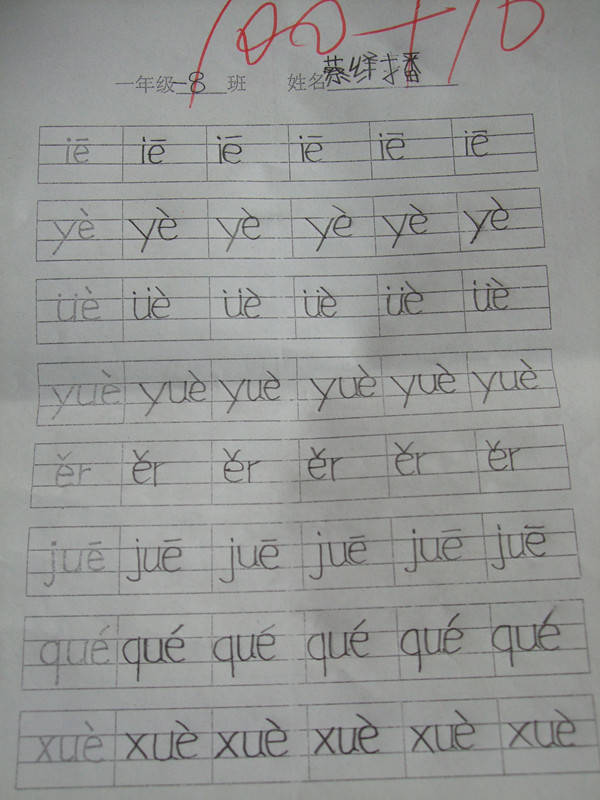 100+10
一年级一8班 姓名
iē iē iē iē iē iē
yè yè yè yè yè yè
üè üè üè üè üè üè
yuè yuè yuè yuè yuè yuè
ěr ěr ěr ěr ěr ěr
juē juē juē juē juē juē
qué qué qué qué qué qué
xuè xuè xuè xuè xuè xuè